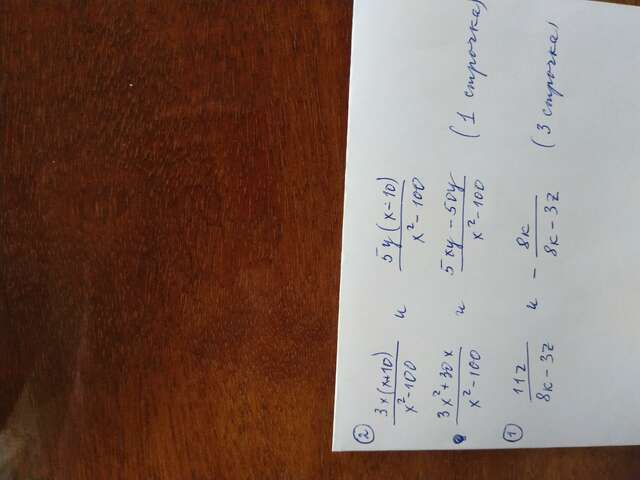 ② 3x(x+10)/x²-100 и 5y(x-10)/x²-100
3x²+30x/x²-100 и 5xy-50y/x²-100 (1 строчка)
① 11z/8к-3z и - 8к/8к-3z (3 строчка)